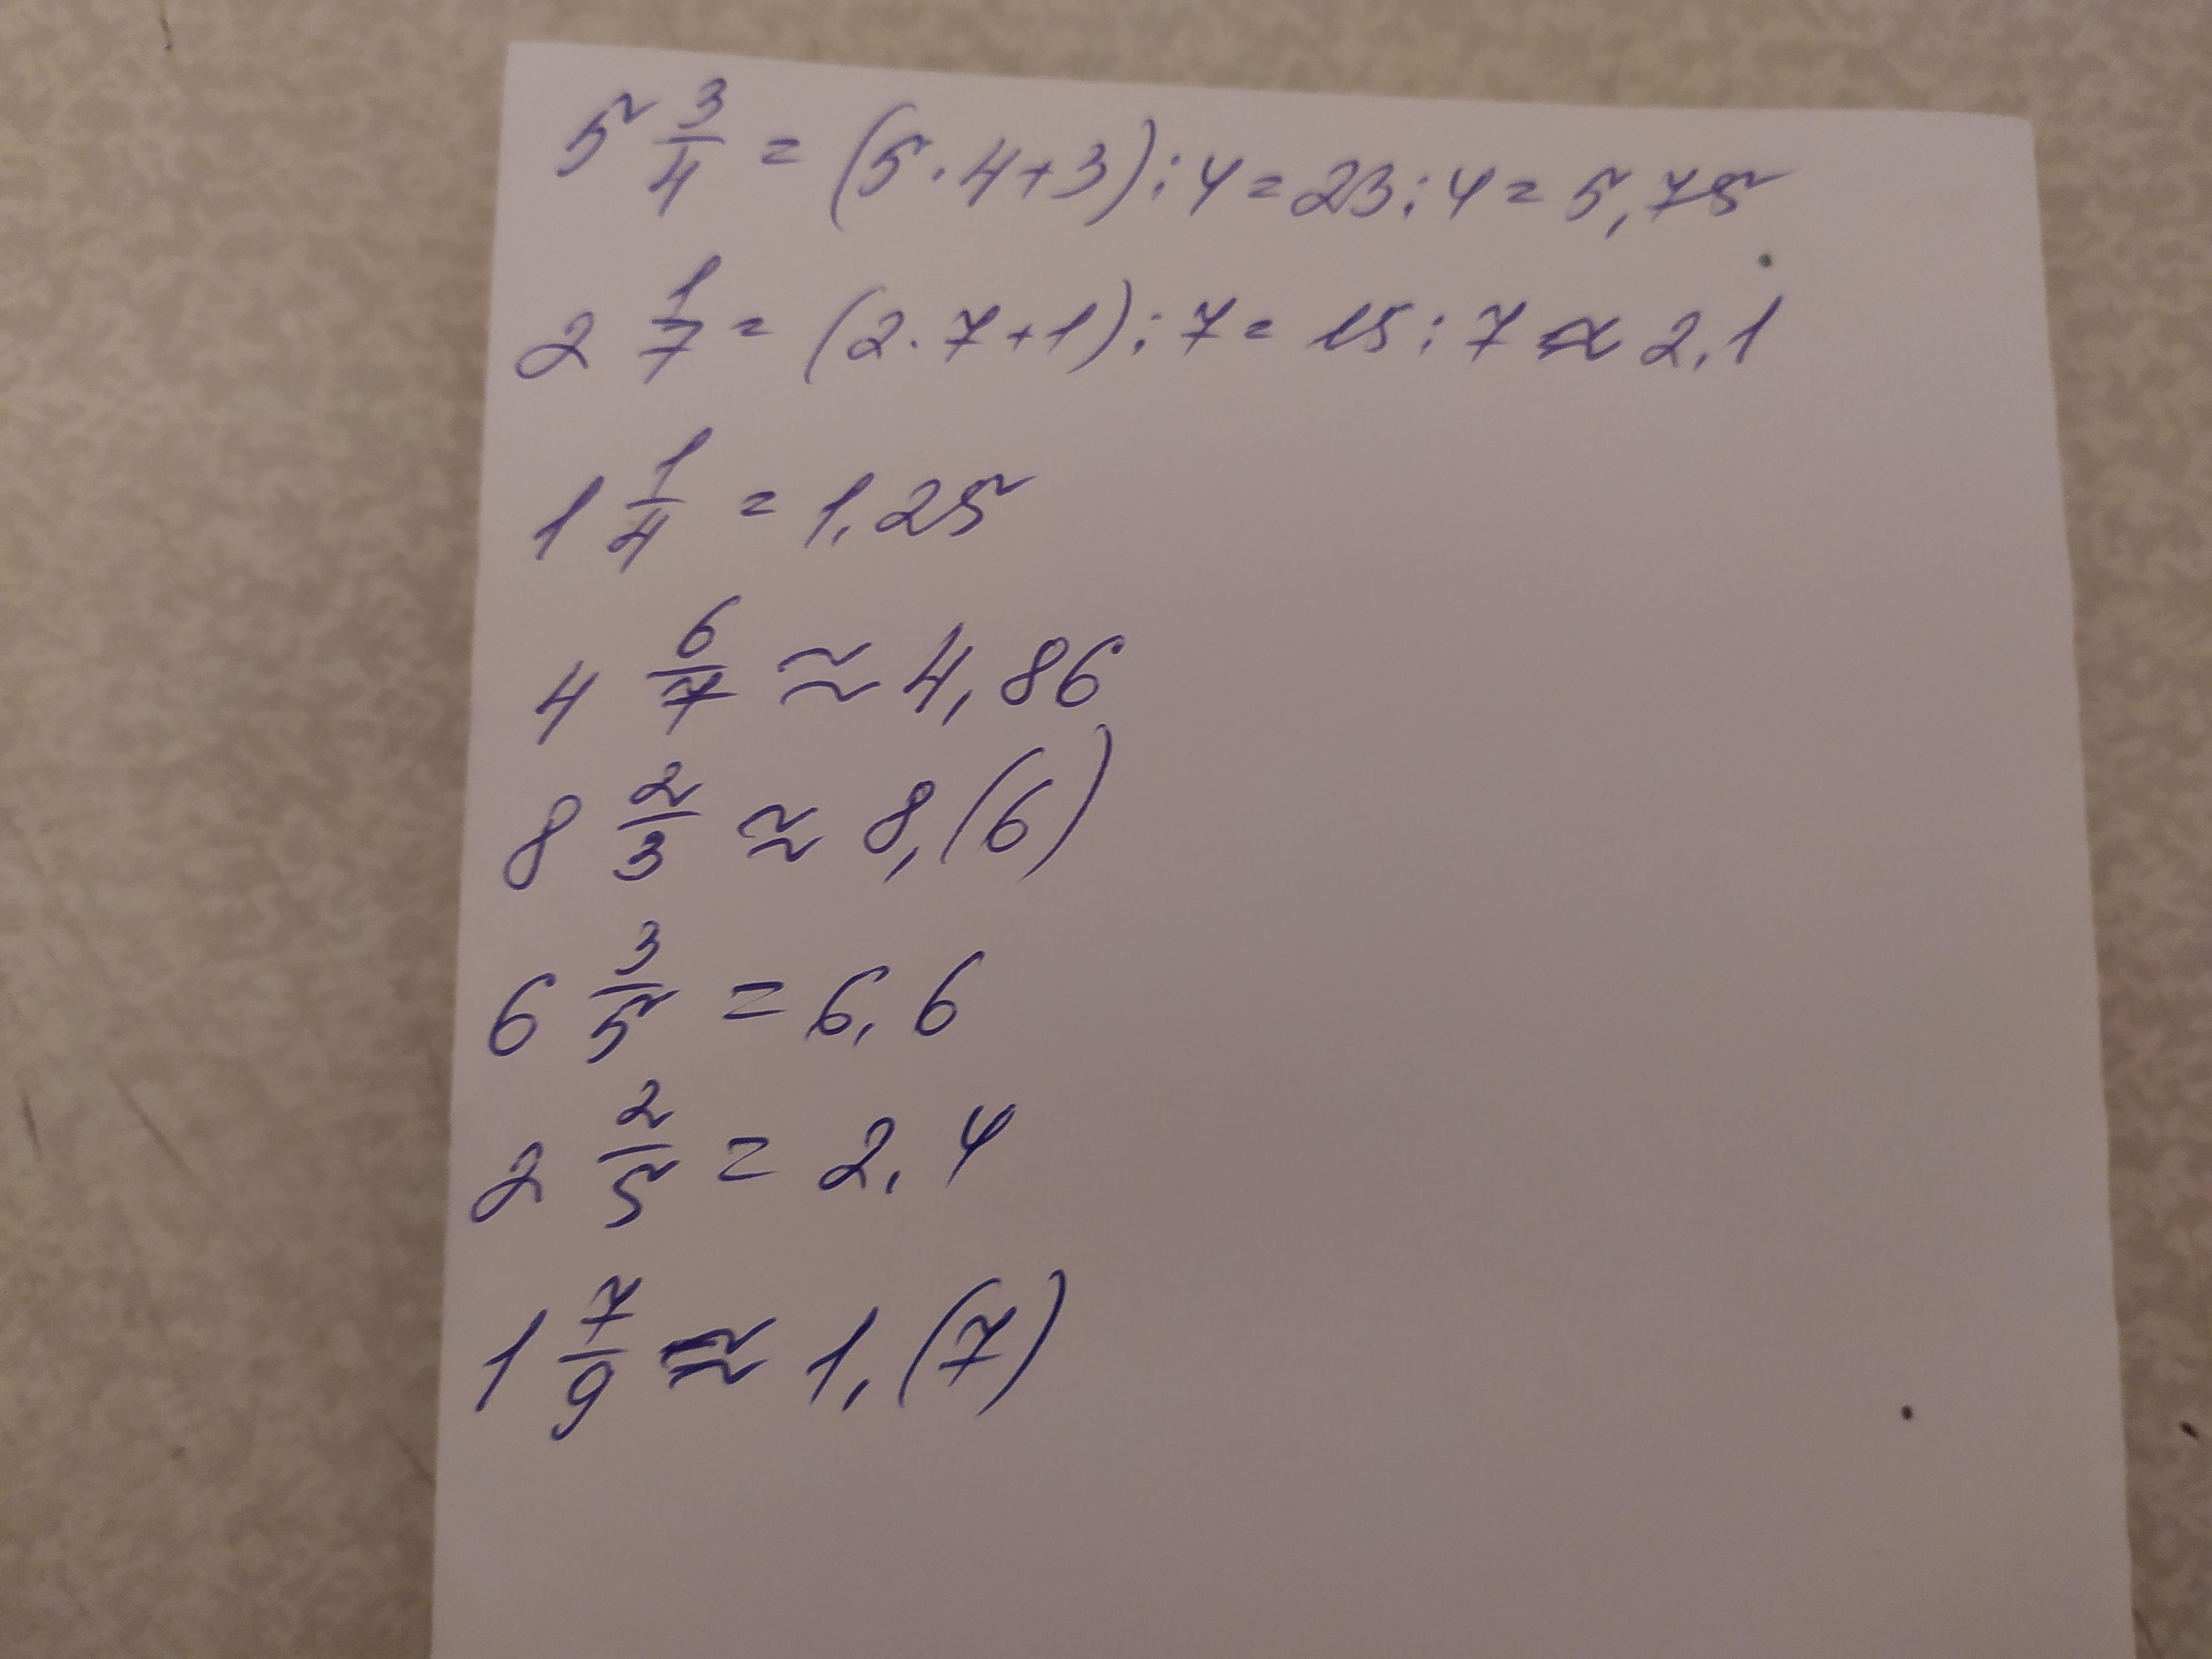 5 3/4 = (5·4+3):4=23:4=5,75
2 1/7 = (2·7+1):7=15:7≈2,1
1 1/4 = 1,25
4 6/7 ≈ 4,86
8 2/3 ≈ 8,(6)
6 3/5 = 6,6
2 2/5 = 2,4
1 7/9 ≈ 1,(7)